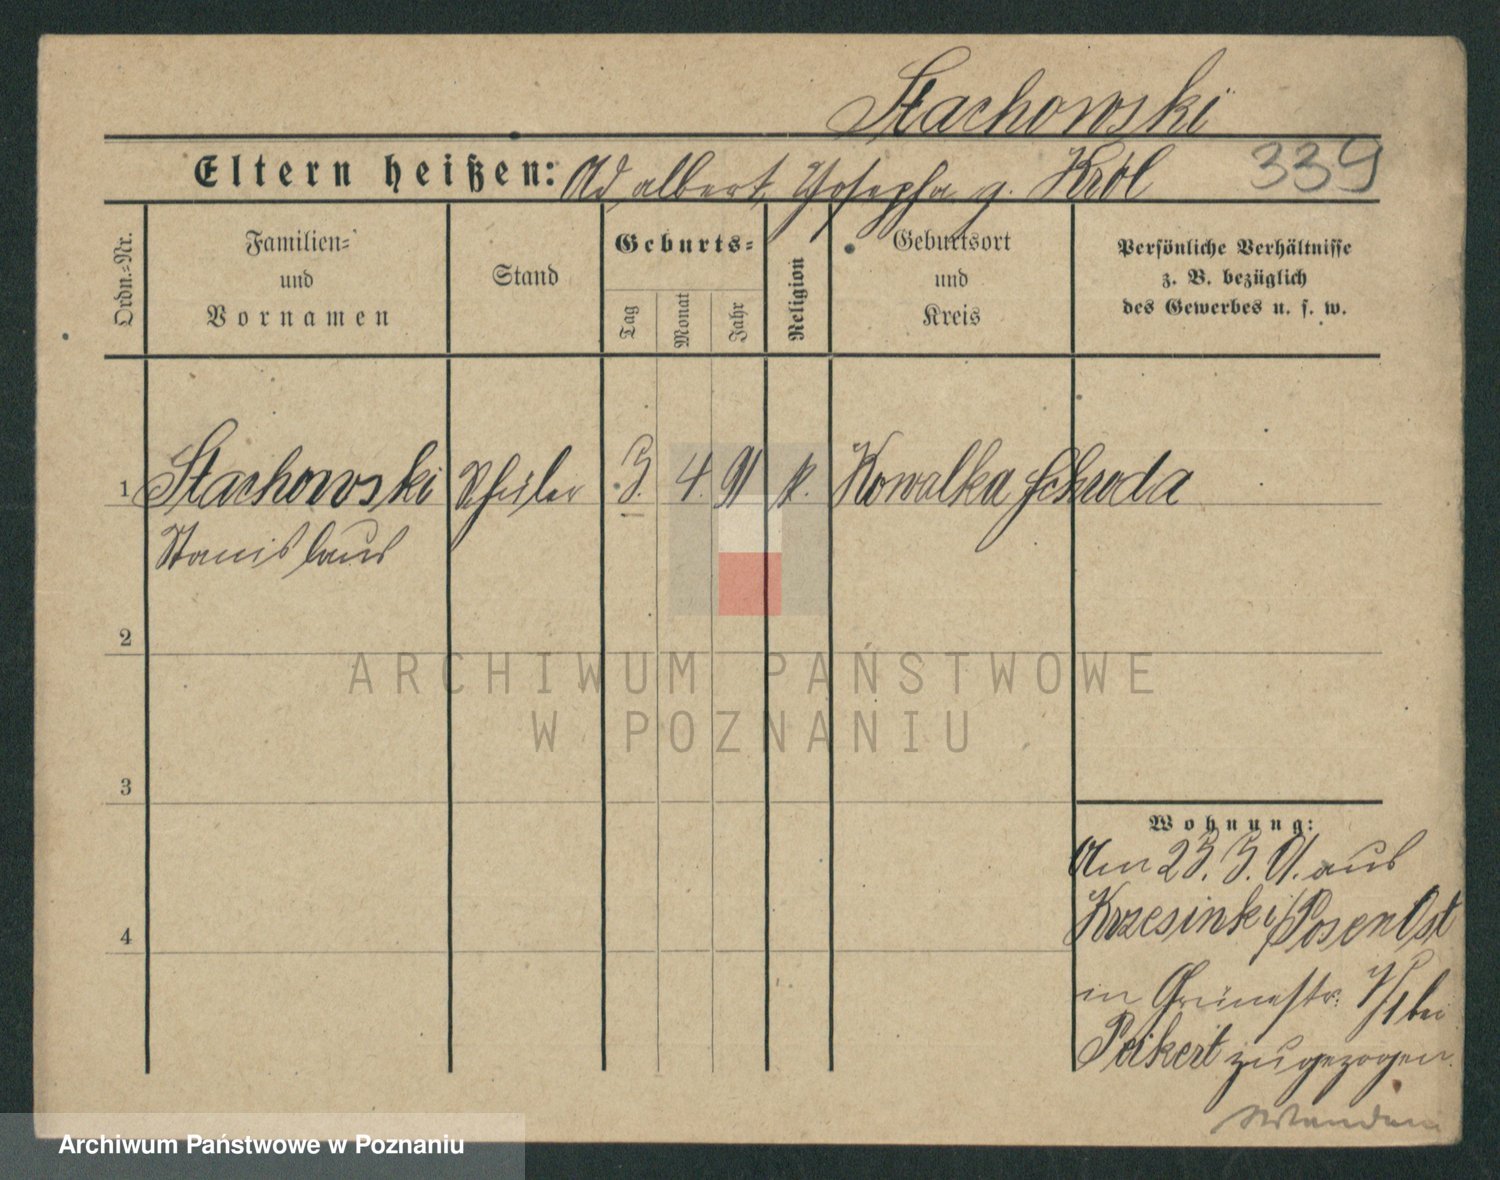 Stachowski
Eltern heißen: Adalbert, Josepha g. Król 339
Ordn.=Nr.
Familien=
und
Vornamen
Stand
Geburts=
Tag
Monat
Jahr
Religion
Geburtsort
und
Kreis
Persönliche Verhältnisse
z. B. bezüglich
des Gewerbes u. s. w.
1 Stachowski Schüler 3. 4. 91 k. Kowalka Schroda
Stanislaus
2
3
4
Wohnung:
Am 23. 3. 01. aus
Krzesinki/Posen Ost
in Grünestr. bei
Peikert zugezogen
ARCHIWUM PAŃSTWOWE
W POZNANIU
Archiwum Państwowe w Poznaniu